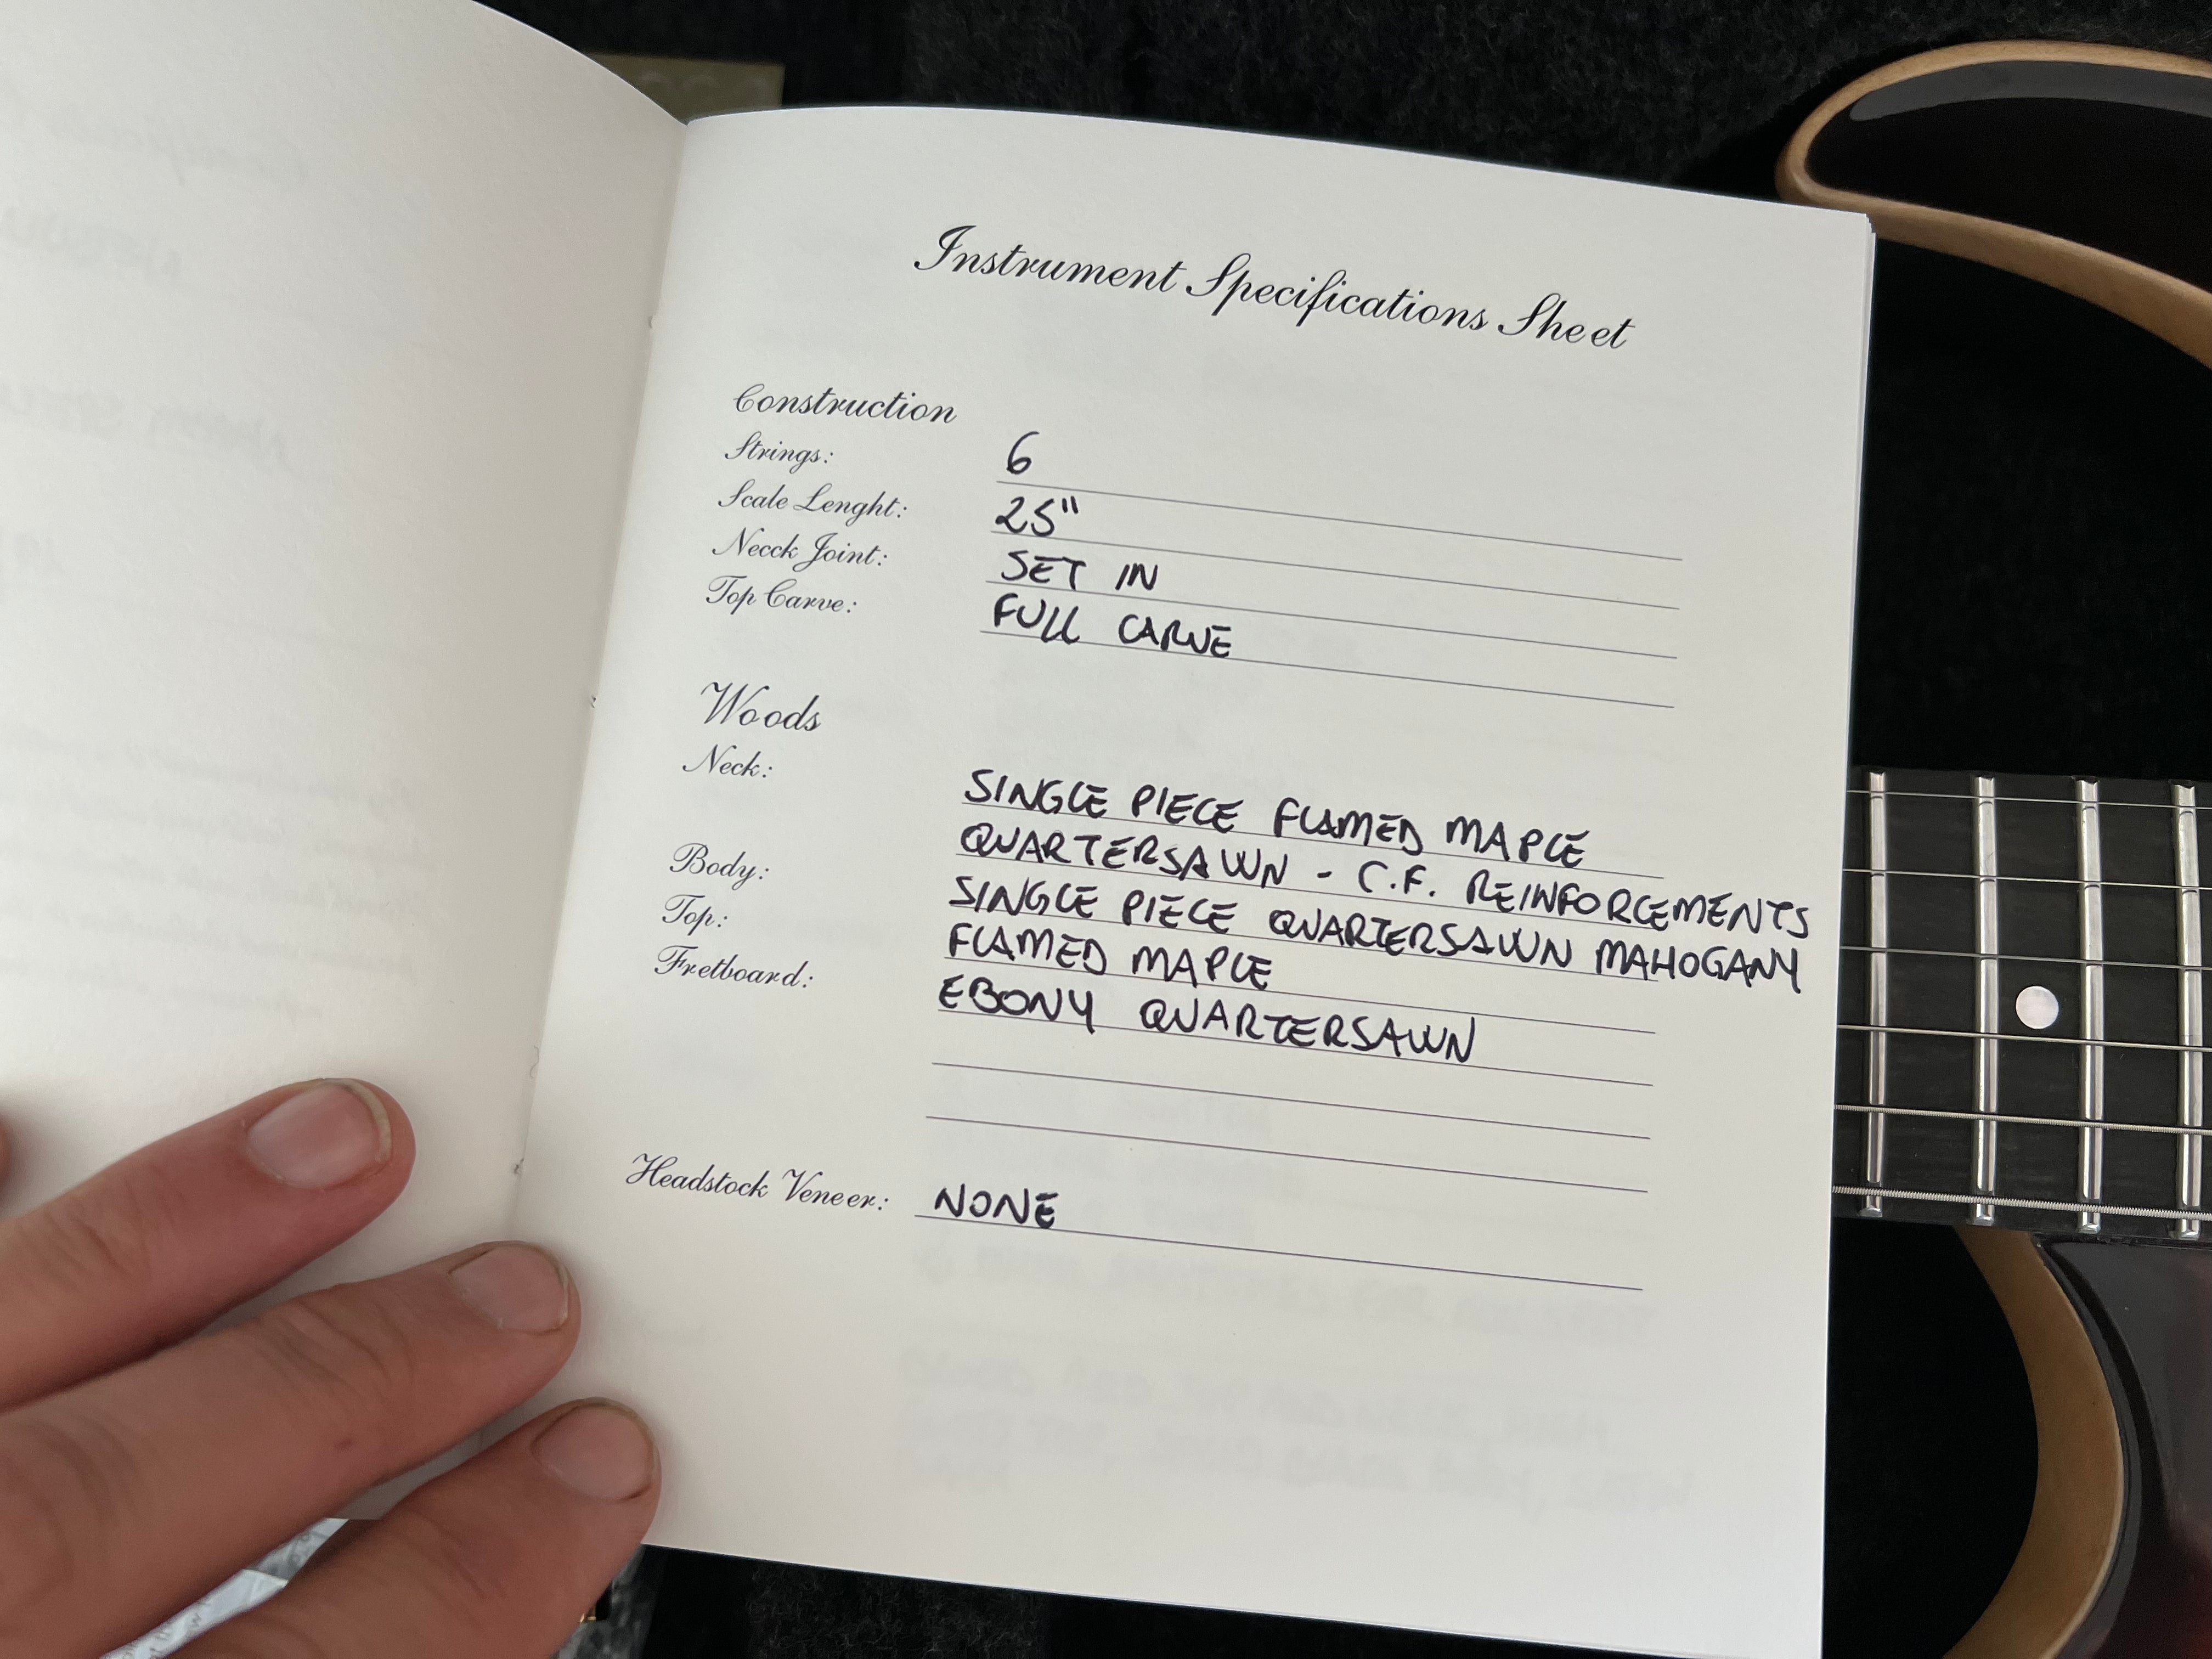 Instrument Specifications Sheet
Construction
Strings: 6
Scale Lenght: 25"
Necck Joint: SET IN
Top Carve: FULL CARVE
Woods
Neck: SINGLE PIECE FLAMED MAPLE
QUARTERSAWN - C.F. REINFORCEMENTS
Body: SINGLE PIECE QUARTERSAWN MAHOGANY
Top: FLAMED MAPLE
Fretboard: EBONY QUARTERSAWN
Headstock Veneer: NONE